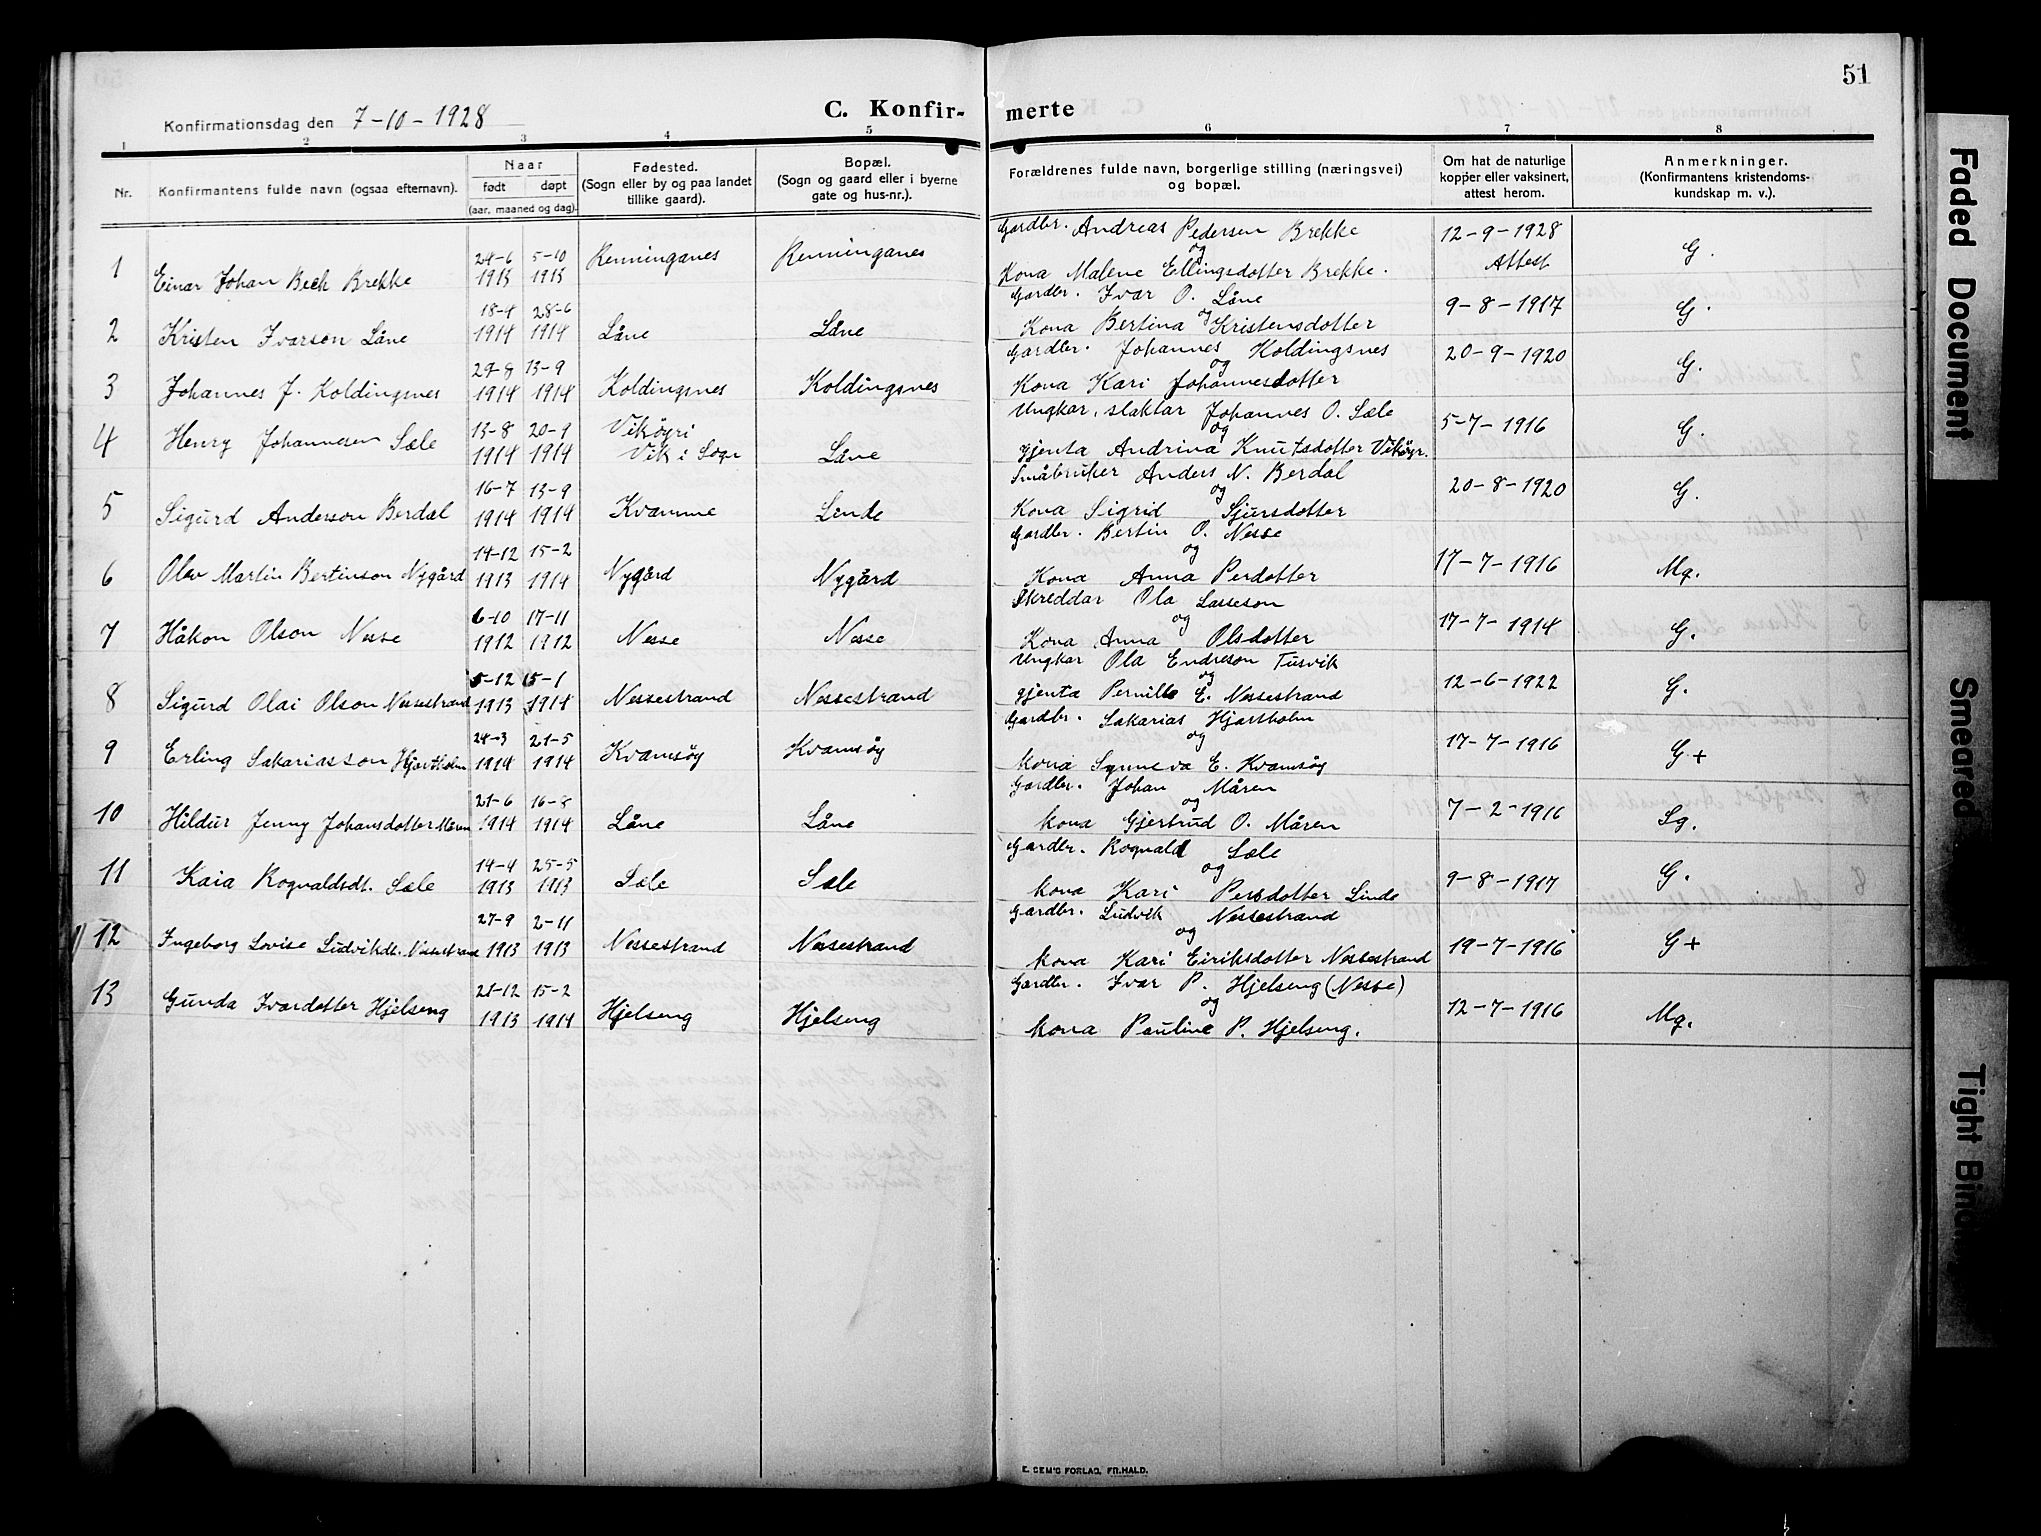 51
C. Konfir- merte
Konfirmationsdag den 7-10-1928
1 2 3 4 5 6 7 8
Nr. Konfirmantens fulde navn (ogsaa efternavn).
Naar
født døpt
(aar, maaned og dag).
Fødested.
(Sogn eller by og paa landet
tillike gaard).
Bopæl.
(Sogn og gaard eller i byerne
gate og hus-nr.).
Forældrenes fulde navn, borgerlige stilling (næringsvei)
og bopæl.
Om hat de naturlige
kopper eller vaksinert,
attest herom.
Anmerkninger.
(Konfirmantens kristendoms-
kundskap m. v.).
Gardbr. Andreas Pedersen Brekke 12-9-1928
24-6 5-10 Renninganes Renninganes og Attest G.
1 Einar Johan Bech Brekke 1913 1913 Kona Malene Ellingsdotter Brekke.
18-4 28-6 Gardbr. Ivar O. Låne 9-8-1917 G.
og
2 Kristen Ivarson Låne 1914 1914 Låne Låne Kona Bertina Kristensdotter
29-8 13-9 Gardbr. Johannes Holdingsnes 20-9-1920 G.
og
3 Johannes J. Koldingsnes 1914 1914 Koldingsnes Koldingsnes Kona Kari Johannesdotter
13-8 20-9 Vikøyri Ungkar, slaktar Johannes O. Sæle 5-7-1916 G.
og
4 Henry Johannesen Sæle 1914 1914 Vik i Sogn Låne gjenta Andrina Knutsdotter Vikøyr.
16-7 13-9 Småbruker Anders N. Berdal 20-8-1920 G.
og
5 Sigurd Anderson Berdal 1914 1914 Kvamme Linde Kona Sigrid Sjursdotter
14-12 15-2 Gardbr. Bertin O. Nesse
og 17-7-1916 Mg.
6 Olav Martin Bertinson Nygård 1913 1914 Nygård Nygård Kona Anna Perdotter
6-10 17-11 Skreddar Ola Lasseson
og 17-7-1914 G.
7 Håkon Olson Nesse 1912 1912 Nesse Nesse Kona Anna Olsdotter
5-12 15-1 Ungkar Ola Endreson Tusvik
og 12-6-1922 G.
8 Sigurd Olai Olson Nessestrand 1913 1914 Nessestrand Nessestrand gjenta Pernille E. Nessestrand
24-3 21-5 Gardbr. Sakarias Hjartholm
og 17-7-1916 G+
9 Erling Sakariasson Hjartholm 1914 1914 Kvamsøy Kvamsøy Kona Synneva E. Kvamsøy
21-6 16-8 Gardbr. Johan Måren
og 7-2-1916 Sg.
10 Hildur Jenny Johansdotter Måren 1914 1914 Låne Låne kona Gjertrud O. Måren
14-4 25-5 Gardbr. Rognald Sæle
og 9-8-1917 G.
11 Kaia Rognaldsdt. Sæle 1913 1913 Sæle Sæle kona Kari Persdotter Linde
27-9 2-11 Gardbr. Ludvik Nessestrand
og 19-7-1916 G+
12 Ingeborg Lovise Ludvikdt. Nessestrand 1913 1913 Nessestrand Nessestrand kona Kari Eiriksdotter Nessestrand
21-12 15-2 Gardbr. Ivar P. Hjelseng (Nesse)
og 12-7-1916 Mg.
13 Gunda Ivardotter Hjelseng 1913 1914 Hjelseng Hjelseng kona Pauline P. Hjelseng.
E. SEM'S FORLAG, FR.HALD.
Faded Document
Smeared